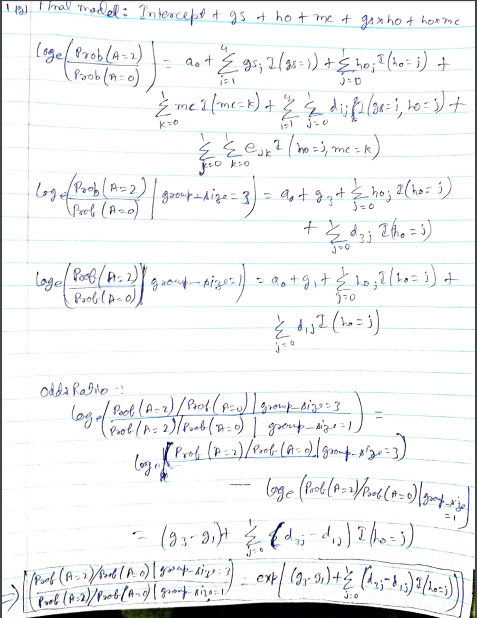 1 (b) Final model: Intercept + gs + ho + mc + gs×ho + ho×mc
loge (Prob(A=2) / Prob(A=0)) = a₀ + Σ⁴ᵢ₌₁ gsᵢ I(gs=i) + Σ¹ⱼ₌₀ hoⱼ I(ho=j) +
Σ¹ₖ₌₀ mc I(mc=k) + Σ⁴ᵢ₌₁ Σ¹ⱼ₌₀ dᵢⱼ I(gs=i, ho=j) +
Σ¹ⱼ₌₀ Σ¹ₖ₌₀ eⱼₖ I(ho=j, mc=k)
loge (Prob(A=2) / Prob(A=0) | group_size=3) = a₀ + g₃ + Σ¹ⱼ₌₀ hoⱼ I(ho=j)
+ Σ¹ⱼ₌₀ d₃ⱼ I(ho=j)
loge (Prob(A=2) / Prob(A=0) | group_size=1) = a₀ + g₁ + Σ¹ⱼ₌₀ hoⱼ I(ho=j) +
Σ¹ⱼ₌₀ d₁ⱼ I(ho=j)
Odds Ratio :-
loge (Prob(A=2)/Prob(A=0) | group_size=3 / Prob(A=2)/Prob(A=0) | group_size=1) =
loge (Prob(A=2)/Prob(A=0) | group_size=3)
— loge (Prob(A=2)/Prob(A=0) | group_size
=1)
= (g₃-g₁) + Σ¹ⱼ₌₀ (d₃ⱼ - d₁ⱼ) I(ho=j)
⇒ (Prob(A=2)/Prob(A=0) | group_size=3 / Prob(A=2)/Prob(A=0) | group_size=1) = exp( (g₃-g₁) + Σ¹ⱼ₌₀ (d₃ⱼ-d₁ⱼ) I(ho=j) )